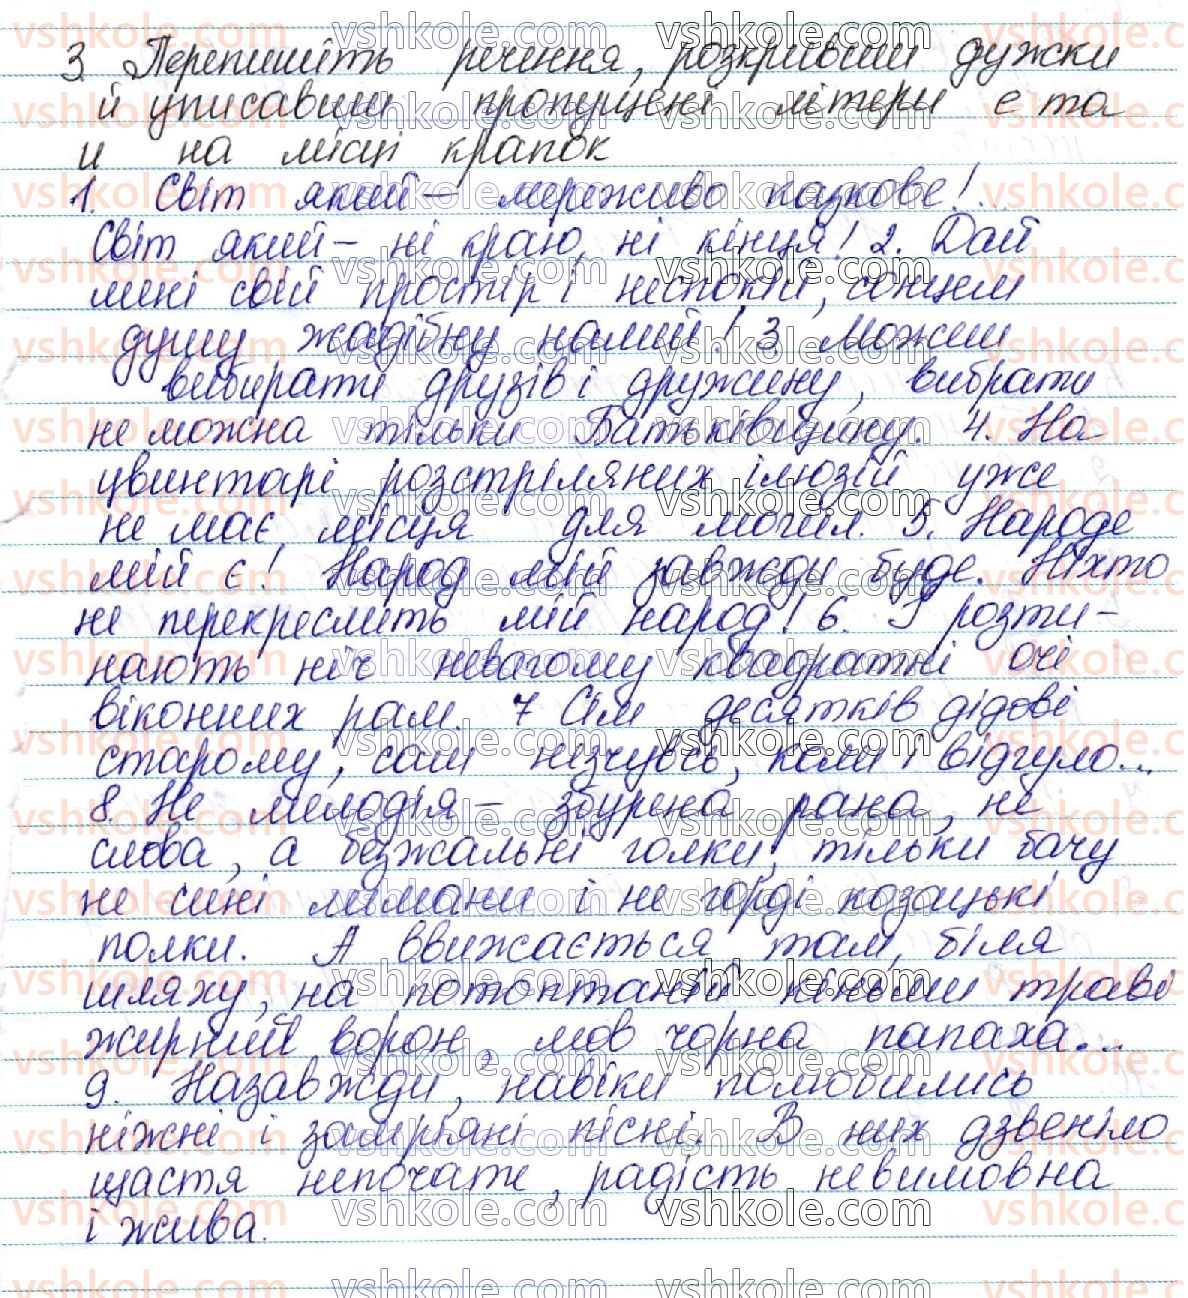 3. Перепишіть речення, розкривши дужки
й уписавши пропущені літери е та
и на місці крапок
1. Світ який – мереживо казкове!...
Світ який – ні краю, ні кінця! 2. Дай
мені свій простір і неспокій, сонцем
душу жадібну налий! 3 Можеш
вибирати друзів і дружину, вибрати
не можна тільки Батьківщину. 4. На
цвинтарі розстріляних ілюзій уже
не має місця для могил. 5. Народе
мій є! Народ мій завжди буде. Ніхто
не перекреслить мій народ! 6. І розти-
нають ніч невагому квадратні очі
віконних рам. 7 Сім десятків дідові
старому, сам незчувсь, коли і відгуло...
8. Не мелодія – збурена рана, не
слова, а безжальні голки, тільки бачу
не сині лимани і не горді козацькі
полки. А ввижається там, біля
шляху, на потоптаній кіньми траві
жирний ворон, мов чорна папаха...
9. Назавжди, навіки полюбились
ніжні і замріяні пісні. В них дзвеніло
щастя непочате, радість невимовна
і жива.